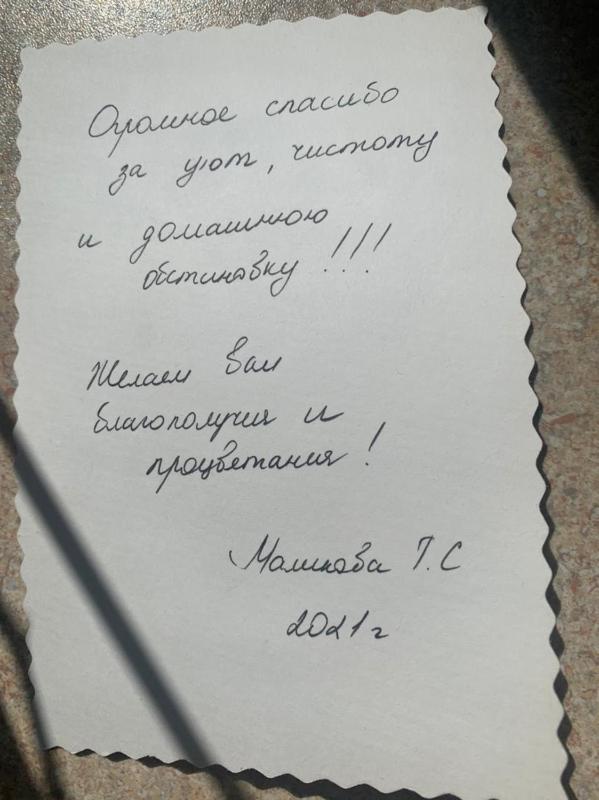 Огромное спасибо
за уют, чистоту
и домашнюю
обстановку!!!
Желаем Вам
благополучия и
процветания!
Маликова Т.С
2021г